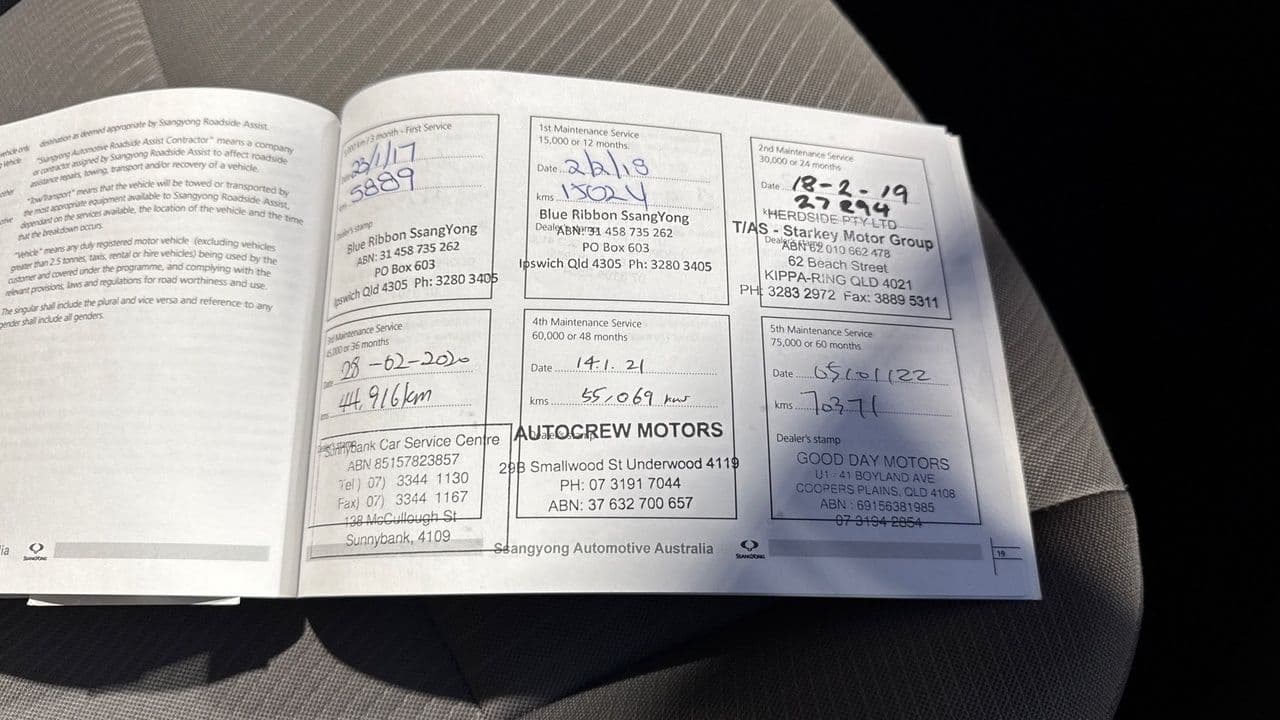 vehicle only
destination as deemed appropriate by Ssangyong Roadside Assist.
"Ssangyong Automotive Roadside Assist Contractor" means a company
or contractor assigned by Ssangyong Roadside Assist to affect roadside
assistance repairs, towing, transport and/or recovery of a vehicle.
"Tow/Transport" means that the vehicle will be towed or transported by
the most appropriate equipment available to Ssangyong Roadside Assist,
dependant on the services available, the location of the vehicle and the time
that the breakdown occurs.
"Vehicle" means any duly registered motor vehicle (excluding vehicles
greater than 2.5 tonnes, taxis, rental or hire vehicles) being used by the
customer and covered under the programme, and complying with the
relevant provisions, laws and regulations for road worthiness and use.
The singular shall include the plural and vice versa and reference to any
gender shall include all genders.
SSANGYONG
3 month - First Service
Date 23/1/17
kms 5889
Dealer's stamp
Blue Ribbon SsangYong
ABN: 31 458 735 262
PO Box 603
Ipswich Qld 4305 Ph: 3280 3405
1st Maintenance Service
15,000 or 12 months.
Date 2/2/18
kms 15024
Blue Ribbon SsangYong
Dealer's stamp
ABN: 31 458 735 262
PO Box 603
Ipswich Qld 4305 Ph: 3280 3405
2nd Maintenance Service
30,000 or 24 months
Date 18-2-19
27294
HERDSIDE PTY LTD
T/AS - Starkey Motor Group
Dealer's stamp
ABN 62 010 662 478
62 Beach Street
KIPPA-RING QLD 4021
PH: 3283 2972 Fax: 3889 5311
3rd Maintenance Service
45,000 or 36 months
Date 28-02-2020
kms 44,916km
Dealer's stamp
SunnyBank Car Service Centre
ABN 85157823857
Tel) 07) 3344 1130
Fax) 07) 3344 1167
138 McCullough St
Sunnybank, 4109
4th Maintenance Service
60,000 or 48 months
Date 14.1.21
kms 55,069 kms
Dealer's stamp
AUTOCREW MOTORS
29B Smallwood St Underwood 4119
PH: 07 3191 7044
ABN: 37 632 700 657
5th Maintenance Service
75,000 or 60 months.
Date 05/01/22
kms 70371
Dealer's stamp
GOOD DAY MOTORS
U1 / 41 BOYLAND AVE
COOPERS PLAINS, QLD 4108
ABN : 69156381985
07 3194 2854
Ssangyong Automotive Australia
SSANGYONG
19